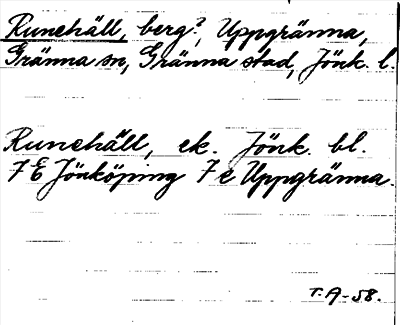 Runehäll, berg?, Uppgränna,
Gränna sn, Gränna stad, Jönk. l.
Runehäll, ek. Jönk. bl.
7 E Jönköping 7 e Uppgränna.
T.A-58.